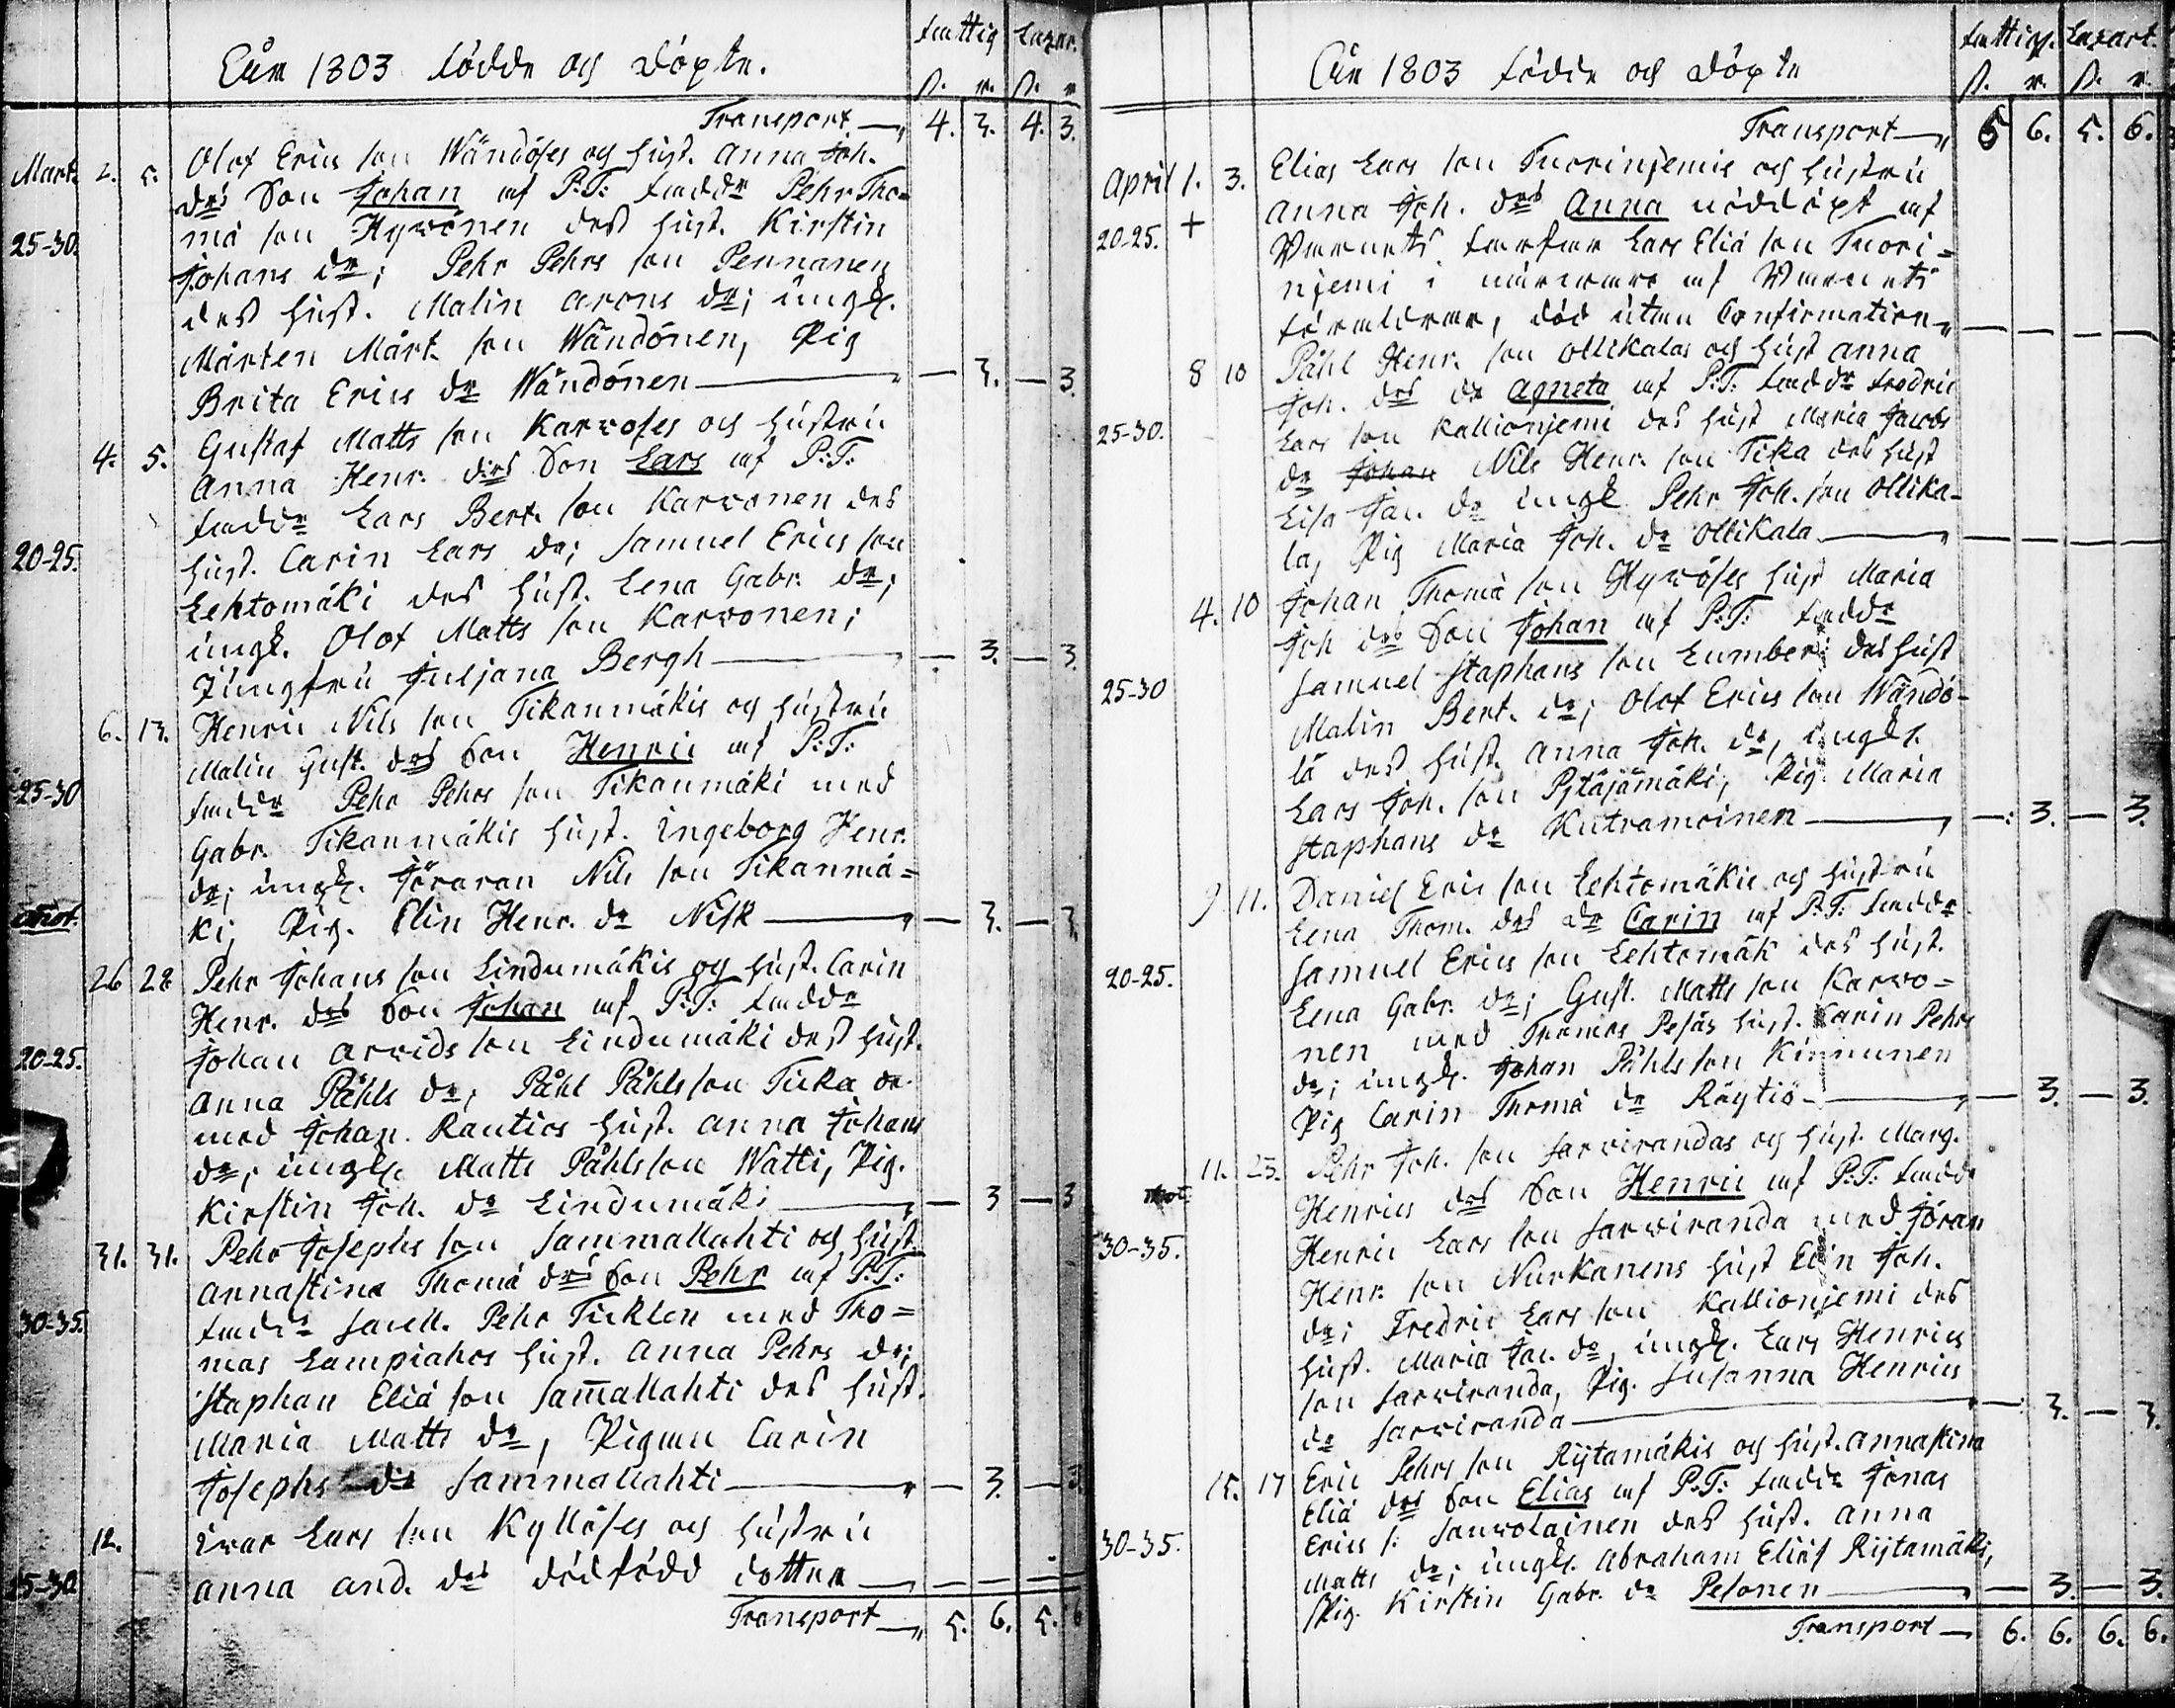 Åår 1803 födde och döpte.
fattig Lazar.
s. r. s. r.
Transport 4. 3. 4. 3.
Mart. 2. 5. Olof Erics son Wändöses och hust. Anna Joh.
drs Son Johan af P:T: fadde Pehr Tho-
25-30. mä son Hyvönen des hust. Kirstin
Johans dr; Pehr Pehrs son Pennanen
des hust. Malin Arons dr; ungk.
Mårten Mårt. son Wändönen, Pig
Brita Erics dr Wändönen — 3. — 3.
4. 5. Gustaf Matts son Karvoses och hustru
Anna Henr. drs Son Lars af P:T:
fadde Lars Bert. son Karvonen des
20-25. hust. Carin Lars dr; Samuel Erics son
Lehtomäki des hust. Lena Gabr. dr;
ungk. Olof Matts son Karvonen;
Jungfru Juljana Bergh — 3. — 3.
6. 13. Henric Nils son Tikanmäkis och hustru
Malin Gust. drs Son Henric af P:T:
25-30 fadde Pehr Pehrs son Tikanmäki med
Gabr. Tikanmäkis hust. Ingeborg Henr.
dr; ungk. Jöraran Nils son Tikanmä=
ki, Pig. Elin Henr. dr Nisk — 3. — 3.
26 28 Pehr Johans son Lindumäkis og hust. Carin
Henr. drs Son Johan af P:T: fadde
20-25. Johan Arvids son Lindumäki des hust.
Anna Påhls dr, Påhl Påhls son Ticka
med Johan Rautios hust. Anna Johans
dr; ungk. Matts Påhls son Watti, Pig.
Kirstin Joh. dr Lindumäki — 3 — 3
31. 31. Pehr Josephs son Sammallahti och hust.
Annastina Thomä drs Son Pehr af P:T:
30-35. fadde Pehr Ticklen med Tho=
mas Lampiahos hust. Anna Pehrs dr;
Staphan Eliä son Samallahti des hust.
Maria Matts dr, Pigan Carin
Josephs dr Sammallahti — 3. — 3.
12. Ivar Lars son Kyllöses och hustru
25-30 Anna And. drs dödfödd dotter — — — —
Transport 5. 6. 5. 6
Åår 1803 födde och döpte
fattigs. Lazart.
s. r. s. r.
Transport 5 6. 5. 6.
April 1. 3. Elias Lars son Tuorinjemis och hustru
+ Anna Joh. drs Anna nöddöpt af
20-25. Barnets farfar Lars Eliä son Tuori=
njemi i närvaro af Barnets
föräldrar, död utan Confirmation — — — —
8 10 Påhl Henr. son Ollikalas och hust Anna
Joh. drs dr Agneta af P:T: fadde Fredric
25-30. Lars son Kallionjemi des hust Maria Jacobs
dr Johan Nils Henr. son Tika des hust
Lisa Jan. dr ungk Pehr Joh. son Ollika-
la, Pig Maria Joh. dr Ollikala — — — —
4. 10 Johan Thomä son Hyvöses hust Maria
Joh drs Son Johan af P:T: fadde
25-30 Samuel Staphans son Lumberi des hust
Malin Bert. dr; Olof Erics son Wändö-
lä des hust. Anna Joh. dr, ungk.
Lars Joh. son Pytäjämäki, Pig. Maria
Staphans dr Kutramoinen — 3. — 3.
9 11. Daniel Eric son Lehtomäkis och hustru
Lena Thom. drs dr Carin af P:T: fadde
20-25. Samuel Erics son Lehtomäk des hust.
Lena Gabr. dr; Gust. Matts son Karvo=
nen med Thomas Pesäs hust. Carin Pehrs
dr; ungk. Johan Påhls son Kinnunen
Pig Carin Thomä dr Räytiö — 3. — 3.
11. 23. Pehr Joh. son Sarvirandas och hust. Marg.
Henrics drs Son Henric af P:T: fadde
30-35. Henric Lars son Sarviranda med Jöran
Henr. son Nurkanens hust Elin Joh.
dr; Fredric Lars son Kallionjemi des
hust. Maria Jac. dr, ungk. Lars Henrics
son Sarviranda, Pig. Susanna Henrics
dr Sarviranda — 3. — 3.
15. 17 Eric Pehrs son Rytamäkis och hust. Annastina
Eliä drs Son Elias af P:T: fadde Jonas
30-35. Erics s: Sauvolainen des hust. Anna
Matts dr; ungk. Abraham Eliäs Rytamäki,
Pig. Kirstin Gabr. dr Pesonen — 3. — 3.
Transport 6. 6. 6. 6.